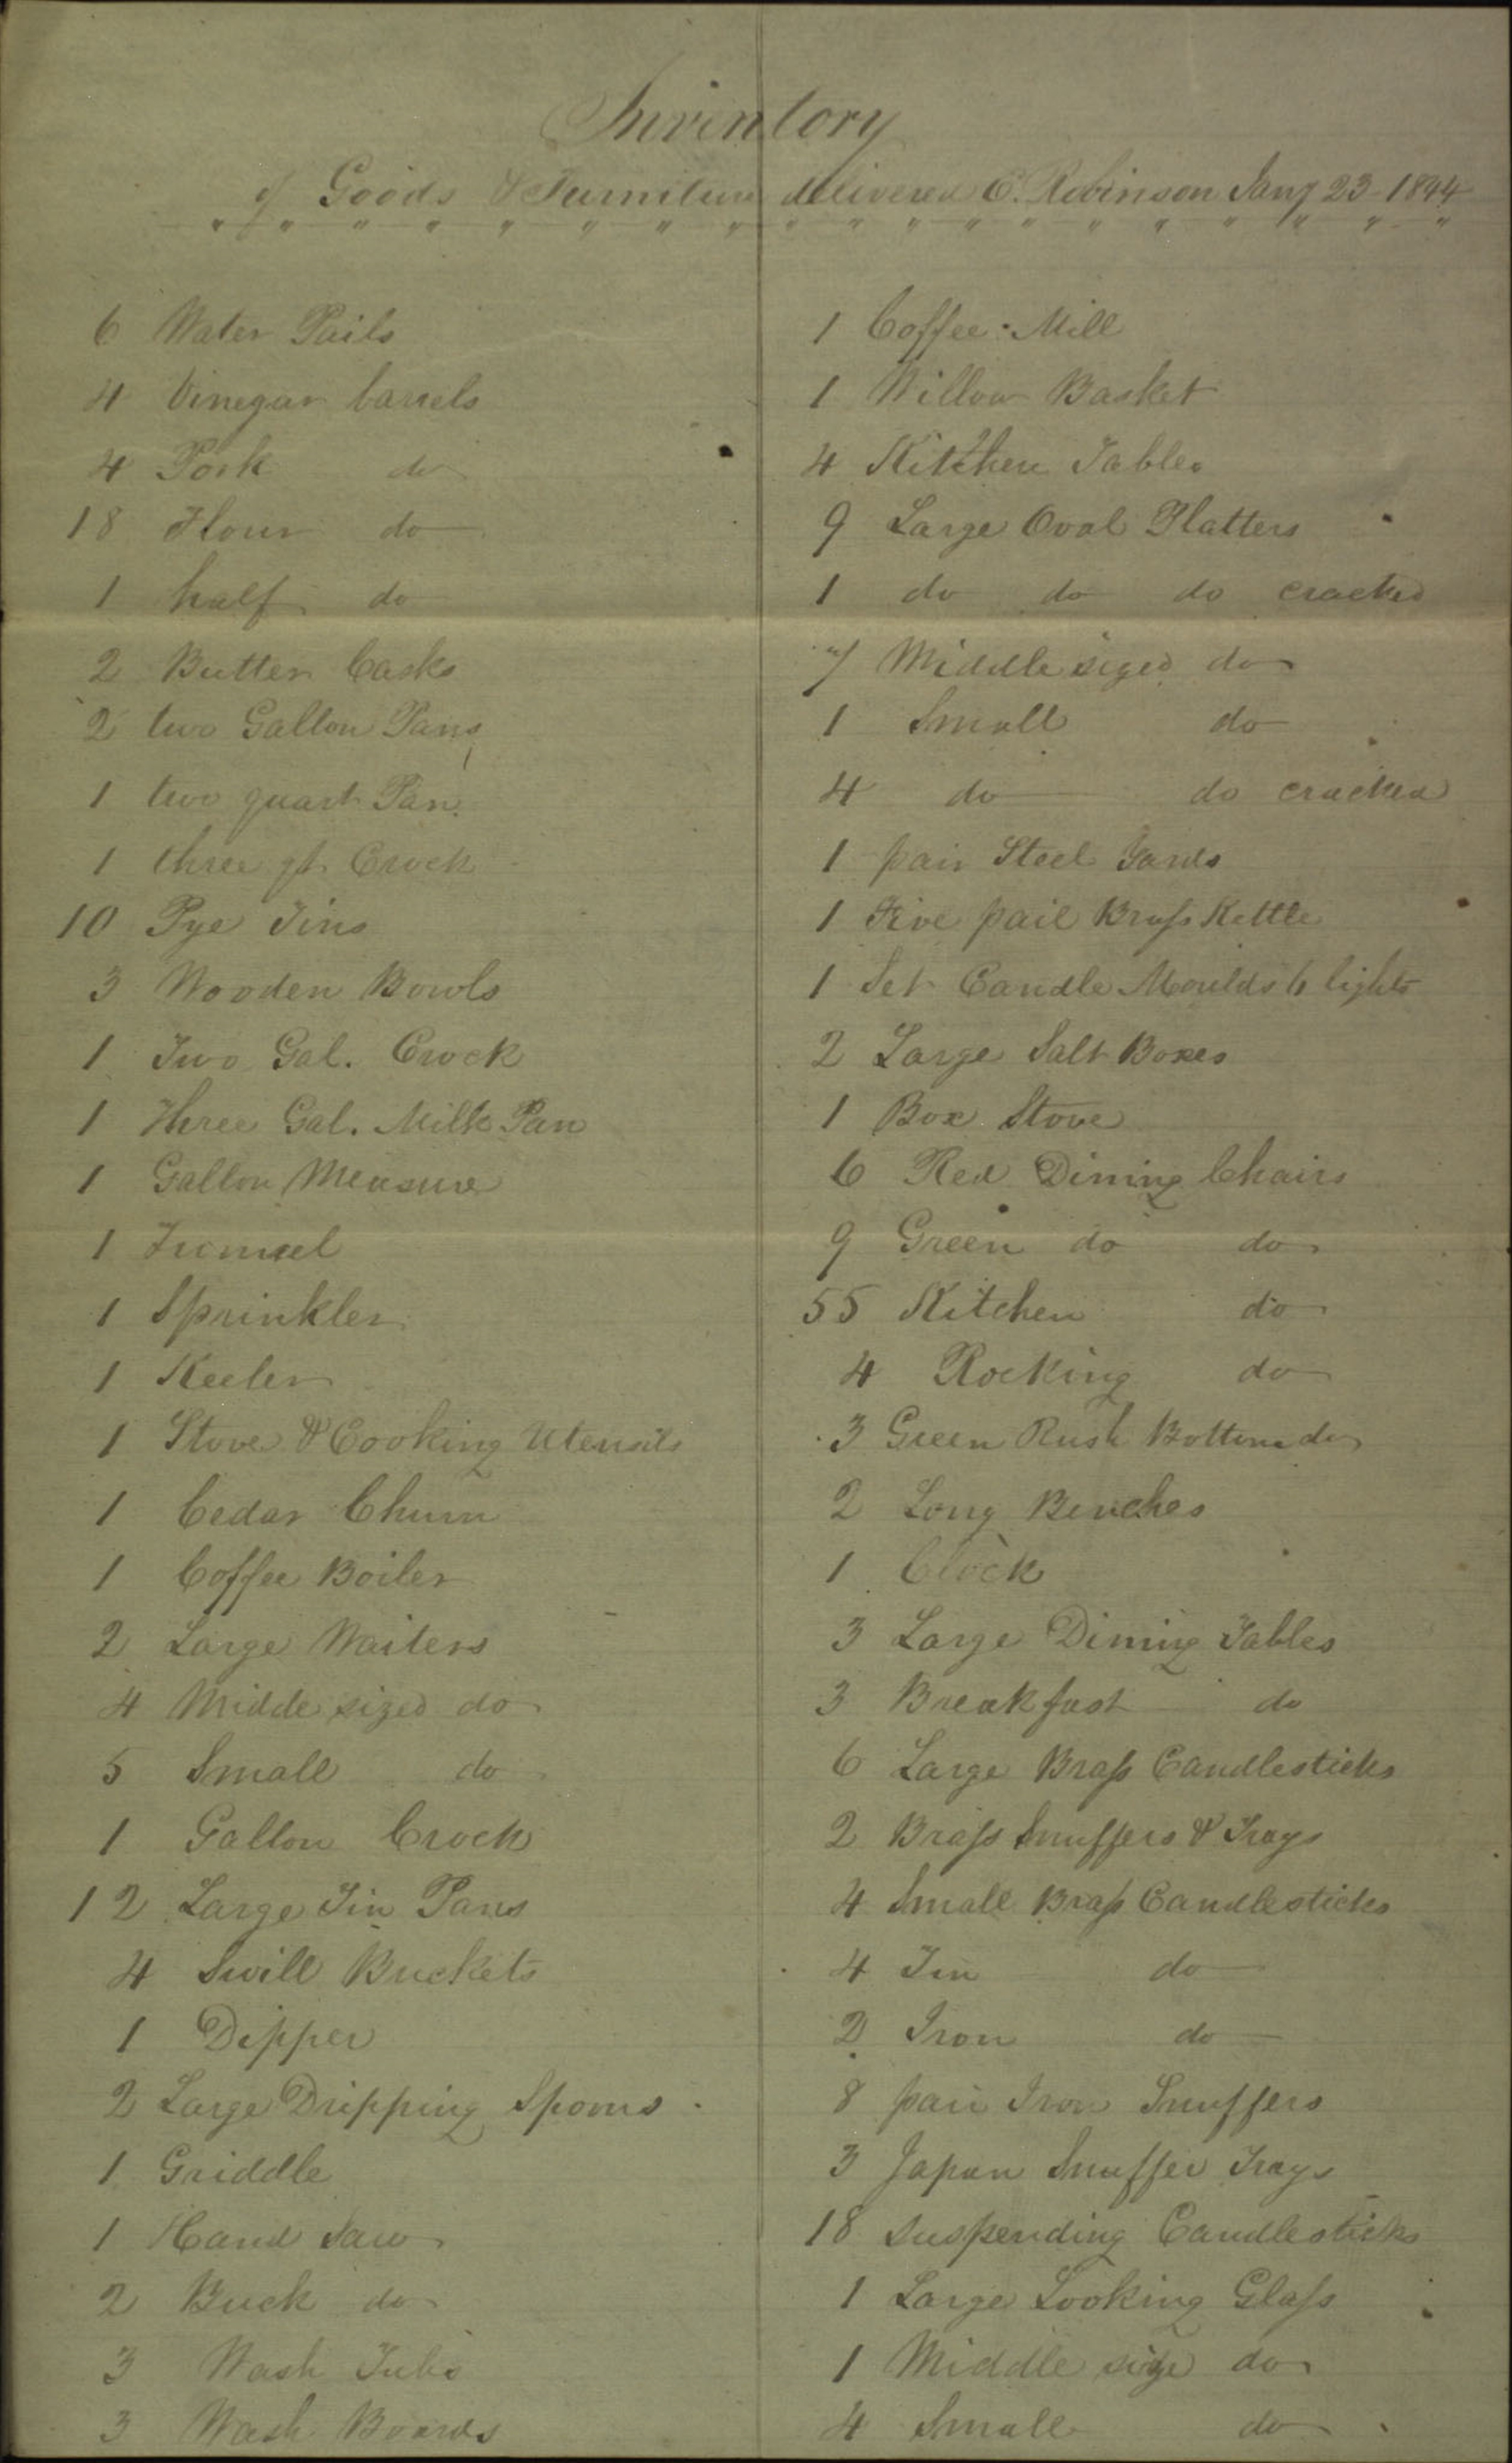 Inventory
of Goods & Furniture delivered E. Robinson Jany 23 1844
" " " " " " " " " " " " " " " " " "
6 Water Pails
4 Vinegar barrels
4 Pork do
18 Flour do
1 half do
2 Butter Casks
2 two Gallon Pans
1 two quart Pan
1 three qt Crock
10 Pye Tins
3 Wooden Bowls
1 Two Gal. Crock
1 Three Gal. Milk Pan
1 Gallon Measure
1 Funnel
1 Sprinkler
1 Keeler
1 Stove & Cooking Utensils
1 Cedar Churn
1 Coffee Boiler
2 Large Waiters
4 Midde sized do
5 Small do
1 Gallon Crock
12 Large Tin Pans
4 Swill Buckets
1 Dipper
2 Large Dripping Spoons
1 Griddle
1 Hand Saw
2 Buck do
3 Wash Tubs
3 Wash Boards
1 Coffee Mill
1 Willow Basket
4 Kitchen Tables
9 Large Oval Platters
1 do do do cracked
7 Middle sized do
1 Small do
4 do do cracked
1 pair Steel Yards
1 Five pail Brass Kettle
1 Set Candle Moulds 6 lights
2 Large Salt Boxes
1 Box Stove
6 Red Dining Chairs
9 Green do do
55 Kitchen do
4 Rocking do
3 Green Rush Bottom do
2 Long Benches
1 Clock
3 Large Dining Tables
3 Breakfast do
6 Large Brass Candlesticks
2 Brass Snuffers & Trays
4 Small Brass Candlesticks
4 Tin do
2 Iron do
8 pair Iron Snuffers
3 Japan Snuffer Trays
18 Suspending Candlesticks
1 Large Looking Glass
1 Middle size do
4 Small do